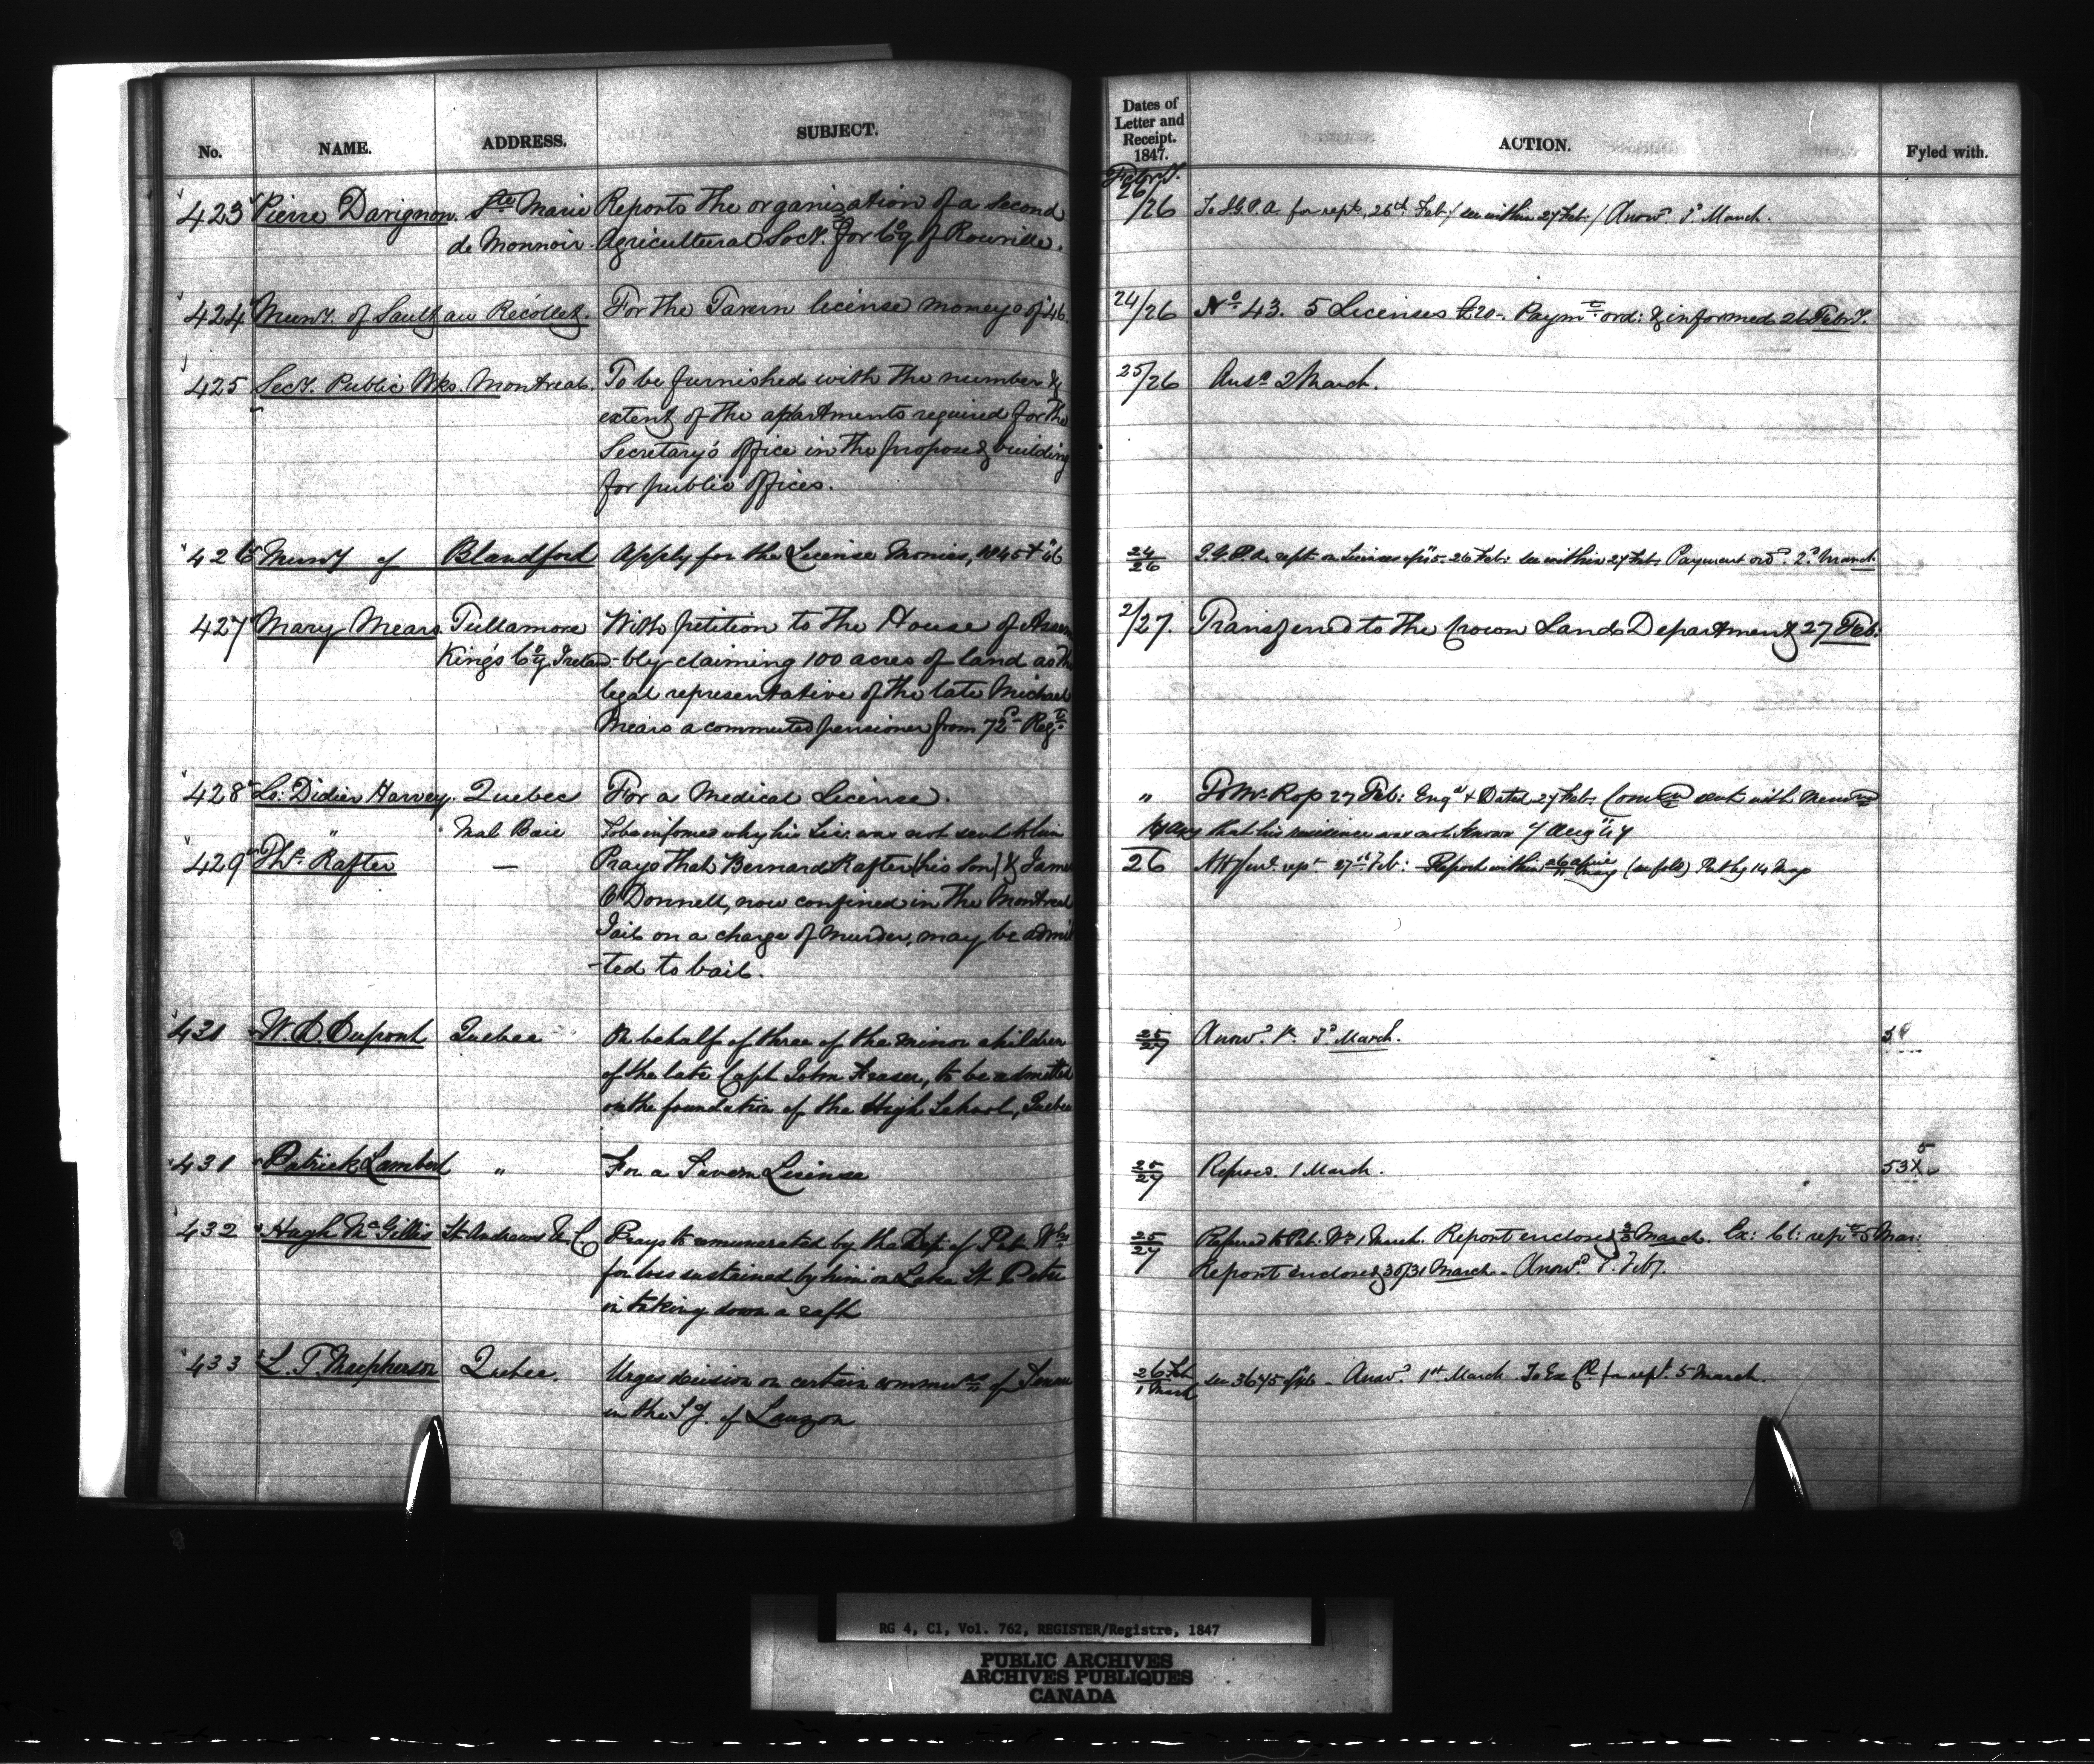 No. NAME. ADDRESS. SUBJECT. Dates of Letter and Receipt. 1847. ACTION. Fyled with.
Febry.
423 Pierre Davignon. Ste Marie Reports the organization of a second 26/26 To I.G.P.A. for rept. 26th Feb:/ see within 27 Feb:/ Answd. 3d March.
de Monnoir. Agricultural Socy. for Coy of Rouville.
424 Muny. of Sault au Récollet. For the Tavern license moneys of '46. 24/26 No 43. 5 Licenses £20-. Paymt ord: & informed 26 Febry.
425 Secy. Public Wks. Montreal. To be furnished with the number & 25/26 Ansd 2 March.
extent of the apartments required for the
Secretary's Office in the proposed building
for public offices.
426 Muny of Blandford Apply for the License Monies, 1845 & 46 24/26 I.G.P.A. rept. on Licenses 26 Feb: see within 27 Feb: Payment ord. 2d March
427 Mary Mears Tullamore With petition to the House of Assem 2/27. Transferred to the Crown Lands Department 27 Feb:
King's Coy Ireland -bly claiming 100 acres of land as the
legal representative of the late Michael
Mears a commuted pensioner from 72d Regt
428 Ls: Didier Harvey. Quebec For a Medical License. " To Mr. Rop 27 Feb: Engd & Dated 27 Feb.
" Mal Baie To be informed why his Lic. was not sent to him that his residence was not known 7 Augt 47
429 Ths. Rafter — Prays that Bernard Rafter (his son) & James 26 Att Genl. rept 27th Feb: Report within (see fold) Put by 14 May
O'Donnell, now confined in the Montreal
Jail on a charge of Murder, may be admit
-ted to bail.
431 W. D. Dupont Quebec On behalf of three of the minor children 25/27 Answd. 3d March.
of the late Capt John Fraser, to be admitted
on the foundation of the High School, Quebec
431 Patrick Lambert " For a Tavern License 25/27 1 March.
432 Hugh McGillis St. Andrews U.C. Prays to remunerated by the Dept of Pub. Wks 25/27 Referred to Pub: Wks 1 March. Report enclosed March. Ex: Cl: rept 5 Mar:
for loss sustained by him on Lake St. Peter Report enclosed 30/31 March. Answd.
in taking down a raft
433 L. T. Macpherson Quebec. Urges decision on certain commutns of Tenure 26 Feb 1 March see 3675 of 46 - Answd. 1st March To Ex Cl for rept. 5 March.
in the Sy. of Lauzon
RG 4, C1, Vol. 762, REGISTER/Registre, 1847
PUBLIC ARCHIVES
ARCHIVES PUBLIQUES
CANADA